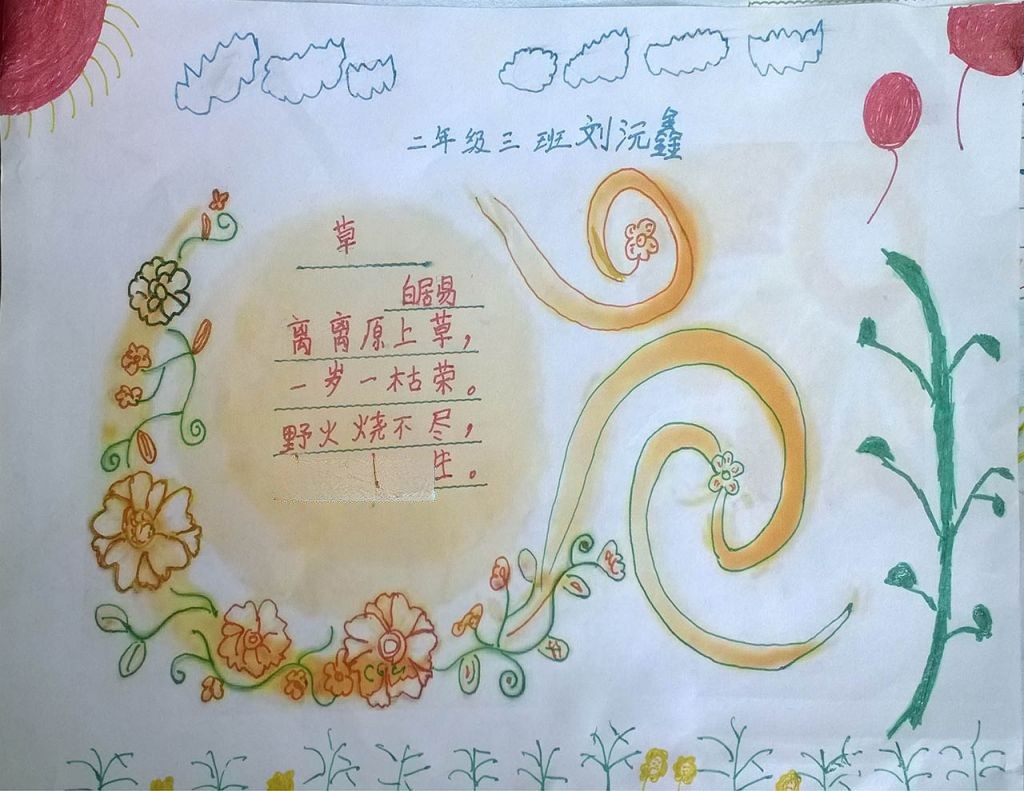 二年级三班刘沅鑫
草
白居易
离离原上草，
一岁一枯荣。
野火烧不尽，
生。